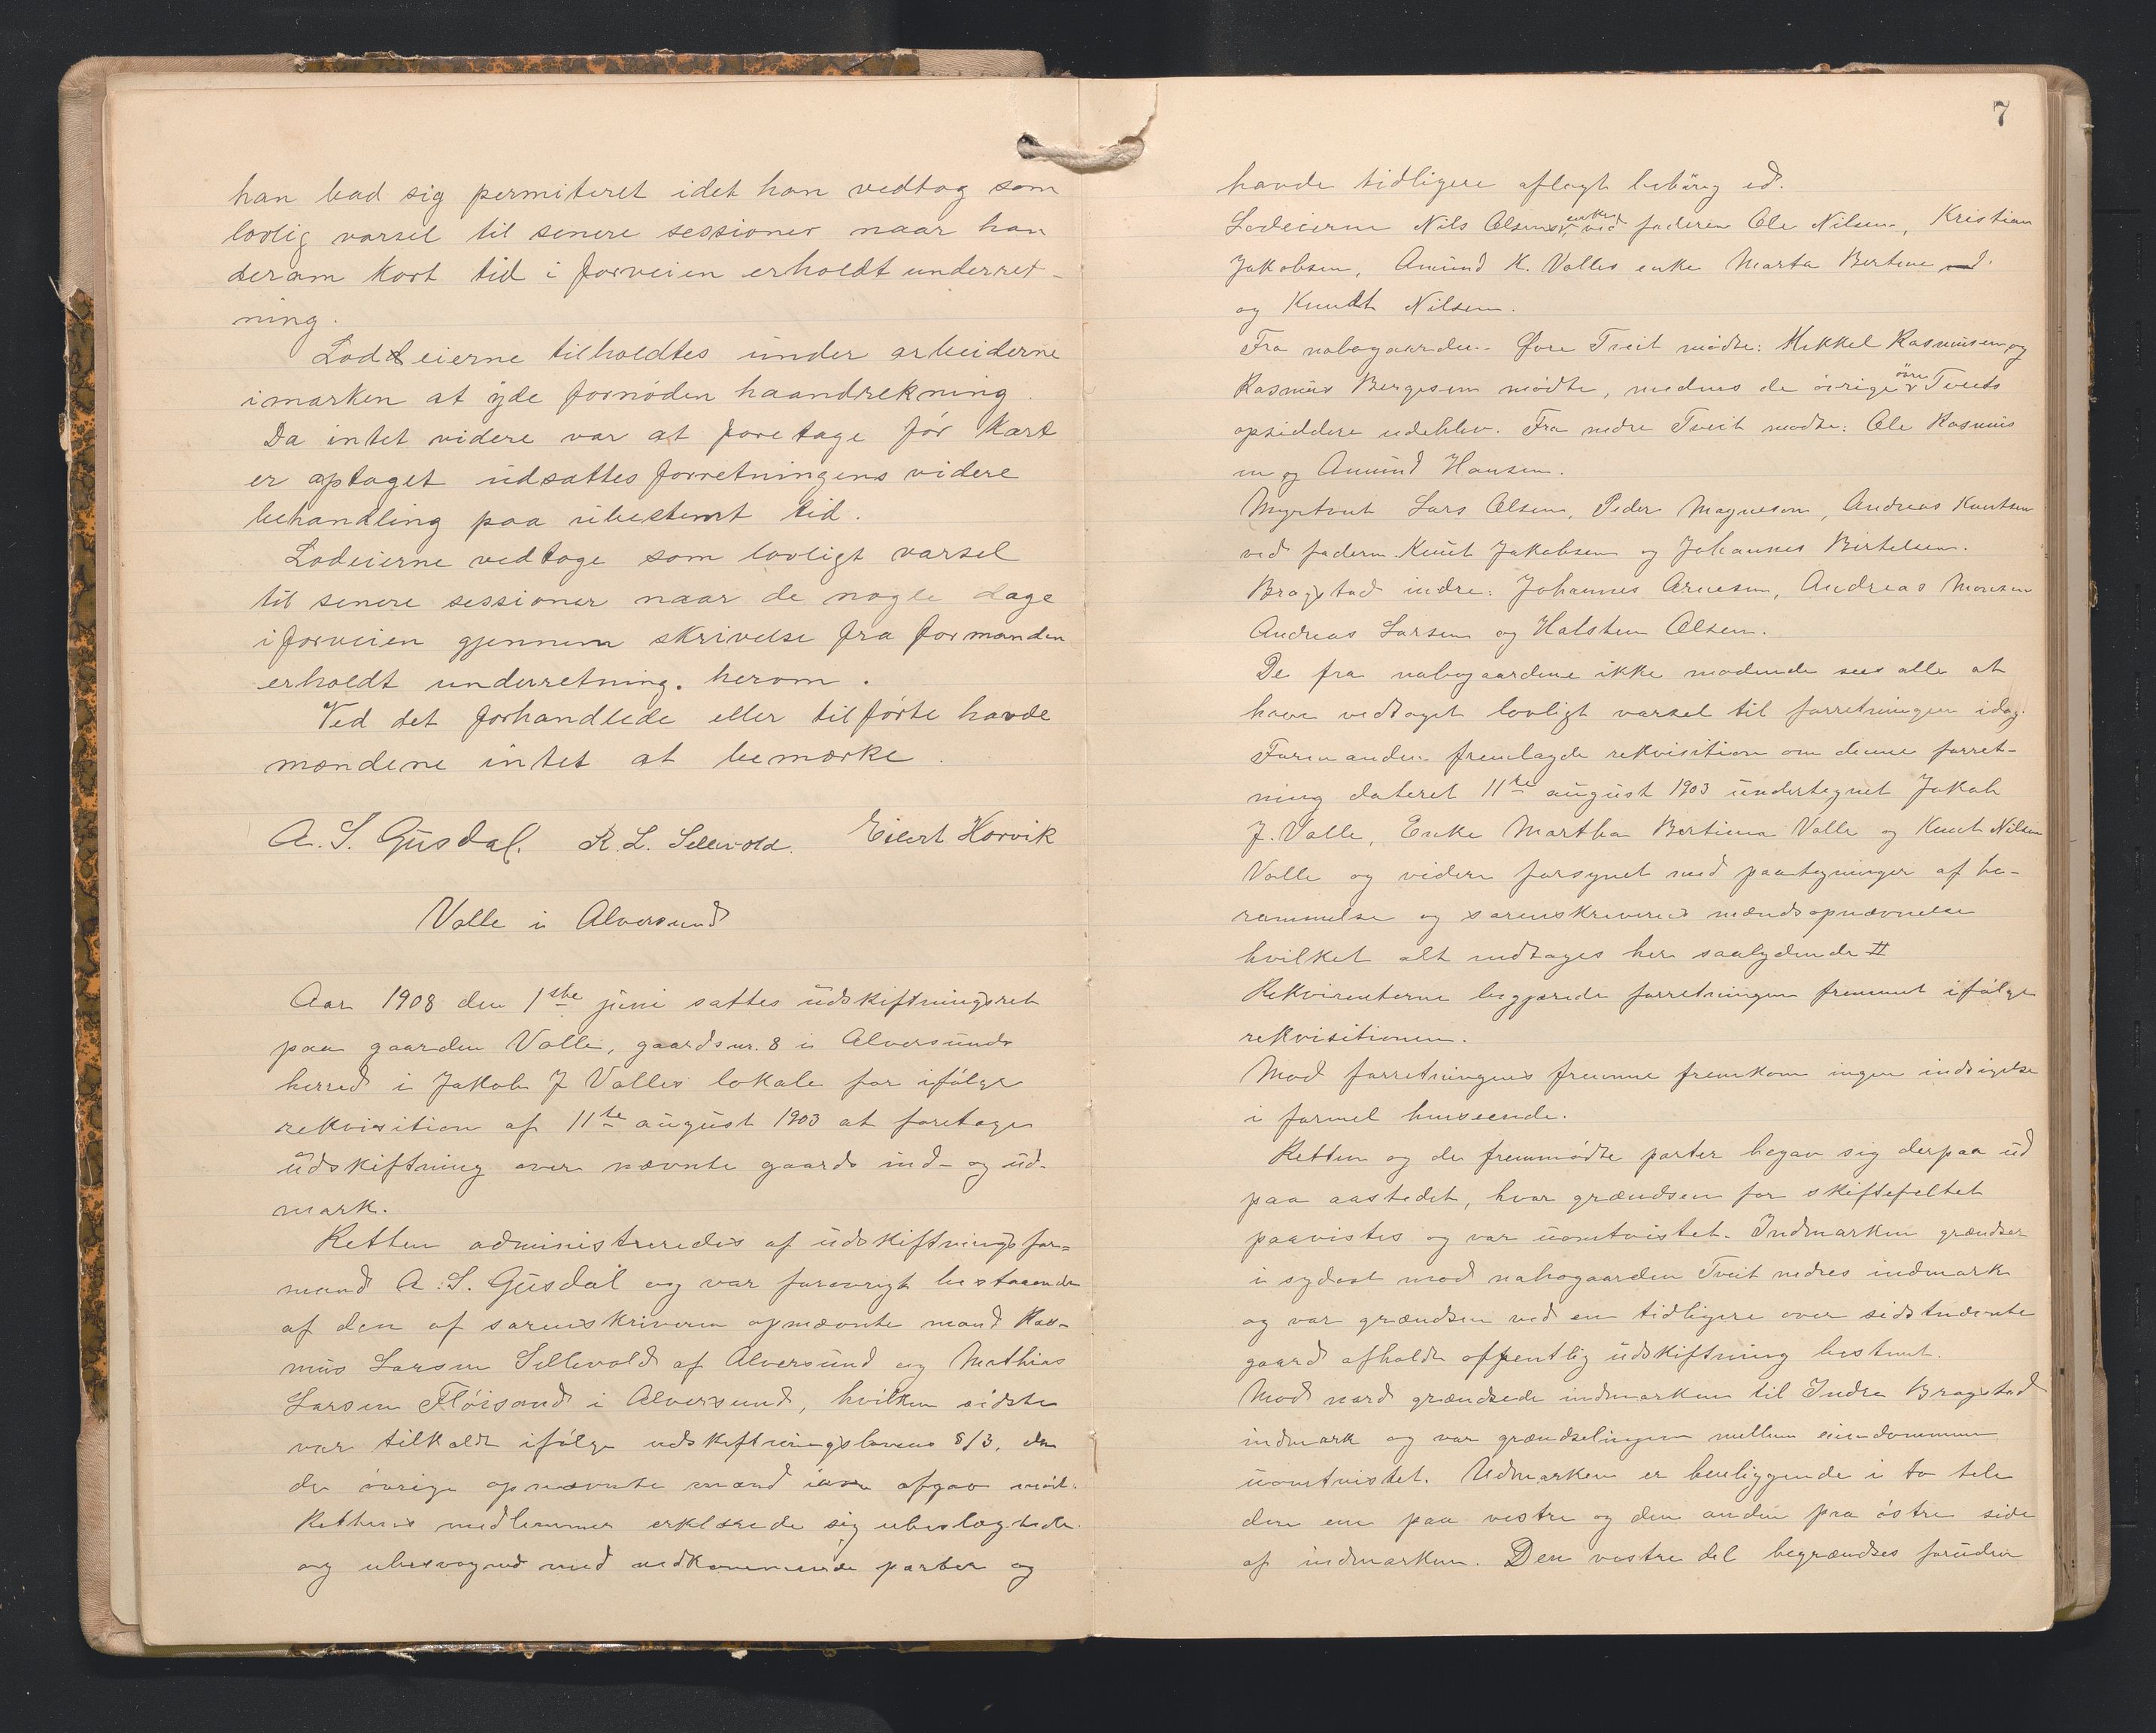 han bad sig permiteret idet han vedtog som
lovlig varsel til senere sessioner naar han
derom kort tid i forveien erholdt underret-
ning.
Lodeierne tilholdtes under arbeiderne
i marken at yde fornøden haandrekning.
Da intet videre var at foretage før kart
er optaget udsattes forretningens videre
behandling paa ubestemt tid.
Lodeierne vedtoge som lovligt varsel
til senere sessioner naar de nogle dage
i forveien gjennem skrivelse fra formanden
erholdt underretning. herom.
Ved det forhandlede eller tilførte havde
mændene intet at bemærke.
A. S. Gusdal. R. L. Sellevold. Eilert Horvik
Valle i Alversund
Aar 1908 den 1ste juni sattes udskiftningsret
paa gaarden Valle, gaardsnr. 8 i Alversunds
herred i Jakob J Valles lokale for ifølge
rekvisition af 11te august 1903 at foretage
udskiftning over nævnte gaards ind- og ud-
mark.
Retten administreredes af udskiftningsfor-
mand A. S. Gusdal og var forøvrigt bestaaende
af den af sorenskriveren opnævnte mand Ras-
mus Larsen Sellevold af Alversund og Mathias
Larsen Fløisand i Alversund, hvilken sidste
var tilkaldt ifølge udskiftningslovens § 13, da
den øvrige opnævnte mand afgav møde.
Rettens medlemmer erklærede sig ubeslægtede
og ubesvogred med vedkommende parter og
7
havde tidligere aflagt behørig ed.
Lodeierne Nils Olsens enke ved faderen Ole Nilsen, Kristian
Jakobsen, Amund K. Valles enke Marta Bertine
og Knudt Nilsen.
Fra nabogaarden Øvre Tveit mødte: Mikkel Rasmussen og
Rasmus Bergesen mødte, medens de øvrige øvre Tveits
opsiddere udeblev. Fra nedre Tveit mødte: Ole Rasmus
en og Amund Hansen.
Myrtveit Lars Olsen, Peder Magneson, Andreas Knutsen
ved faderen Knut Jakobsen og Johannes Bertelsen.
Bragstad indre: Johannes Arnesen, Andreas Monsen
Andreas Larsen og Halsten Olsen.
De fra nabogaardene ikke mødende sees alle at
have vedtaget lovligt varsel til forretningen idag.
Formanden fremlagde rekvisition om denne forret-
ning dateret 11te august 1903 undertegnet Jakob
J. Valle, Enke Martha Bertina Valle og Knut Nilsen
Valle og videre forsynet med paategninger af be-
rammelse og sorenskriverens mændsopnævnelse
hvilket alt indtages her saalydende #
Rekvirenterne begjærede forretningen fremmet ifølge
rekvisitionen.
Mod forretningens fremme fremkom ingen indsigelse
i formel henseende.
Retten og de fremmødte parter begav sig derpaa ud
paa aastedet, hvor grændsen for skiftefeltet
paavistes og var uomtvistet. Indmarken grændser
i sydost mod nabogaarden Tveit nedres indmark
og var grændsen ved en tidligere over sidstnævnte
gaard afholdt offentlig udskiftning bestemt.
Mod nord grændsede indmarken til Indre Bragstad
indmark og var grændselinjen mellem eiendommene
uomtvistet. Udmarken er beliggende i to dele
den ene paa vestre og den anden paa østre side
af indmarken. Den vestre del begrændses foruden